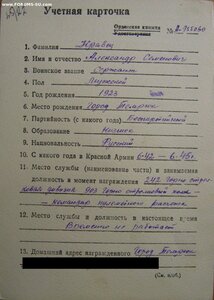 Учетная карточка
Орденская книжка
Удостоверение
№ 
1. Фамилия Кравец
2. Имя и отчество Александр Семенович
3. Воинское звание Сержант
4. Пол Мужской
5. Год рождения 1923
6. Место рождения Город Темрюк
7. Партийность (с какого года) Беспартийный
8. Образование низшее
9. Национальность Русский
10. С какого года в Красной Армии 6-42 - 6.45г.
11. Место службы (наименование части) и занимаемая
должность в момент награждения 242 Горно стрел-
ковая дивизия 903 Горно стрелковый полк -
командир пулеметного расчета
12. Место службы и должность в настоящее время
Временно не работает
13. Домашний адрес награжденного Город Темрюк
(См. на об.)